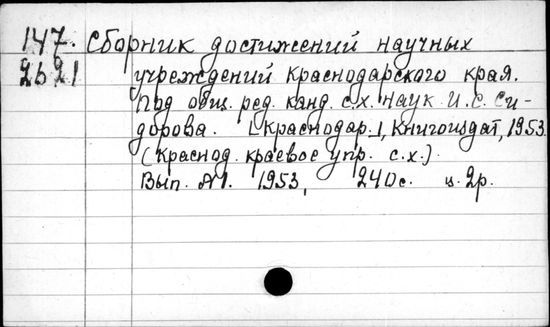 147. Сборник достижений научных
2621 учреждений Краснодарского края.
Под общ. ред. канд. с.х. наук И.С. Си-
дорова. [Краснодар], Книгоиздат, 1953.
(Краснод. краевое упр. с.х.).
Вып. №1. 1953, 240с. ц. 2р.